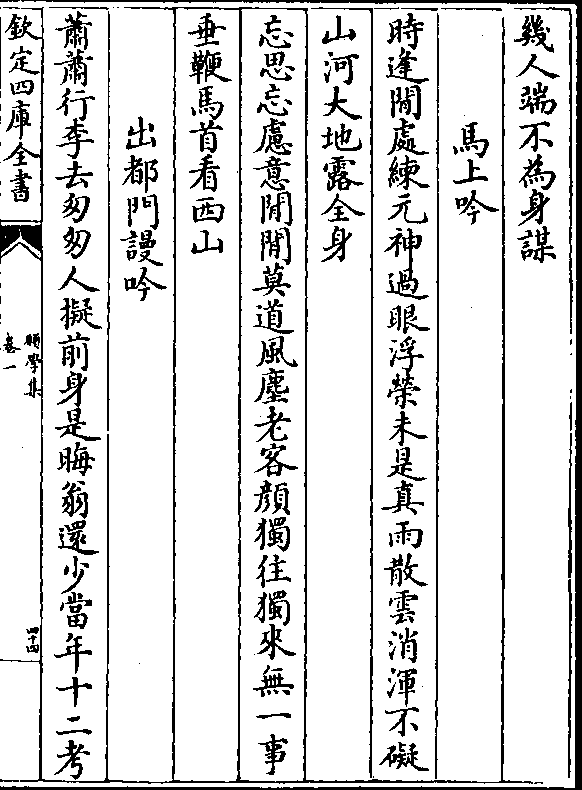 幾人端不為身謀
馬上吟
時逢閒處練元神過眼浮榮未是真雨散雲消渾不礙
山河大地露全身
忘思忘慮意閒閒莫道風塵老客顔獨往獨來無一事
垂鞭馬首看西山
出都門謾吟
蕭蕭行李去匆匆人擬前身是晦翁還少當年十二考
欽定四庫全書
願學集
卷一
四十四